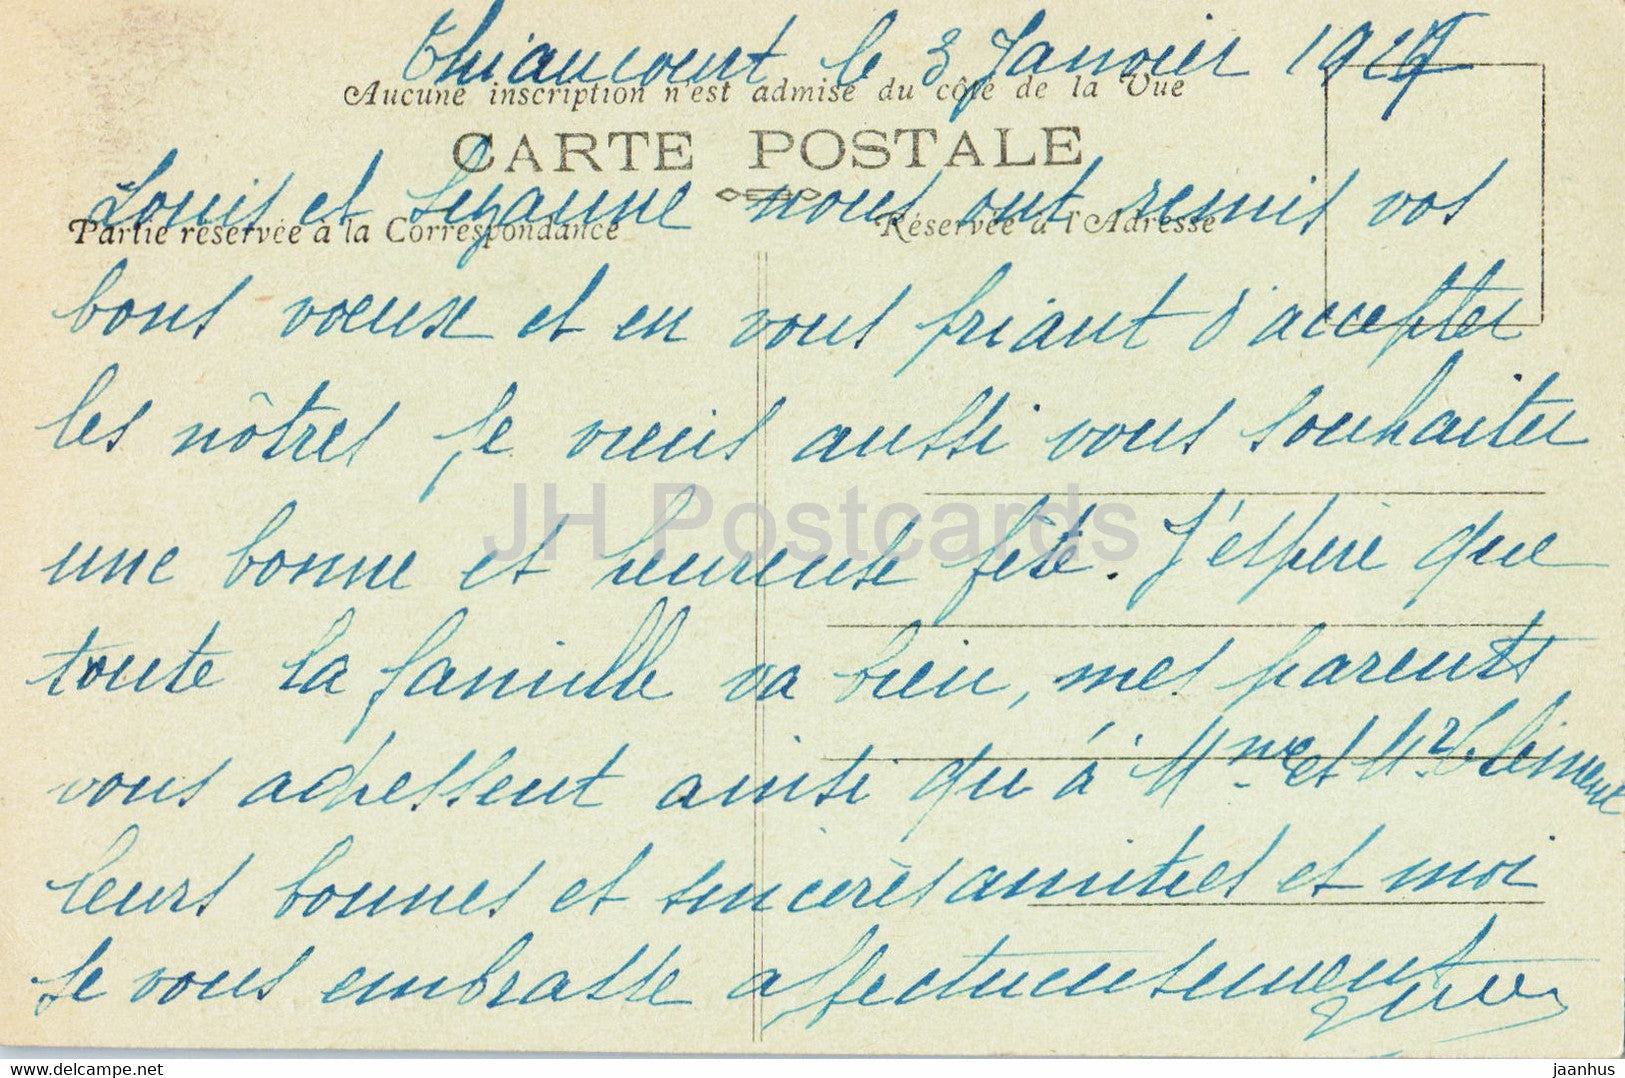 Thiaucourt le 3 Janvier
Aucune inscription n'est admise du côté de la Vue
CARTE POSTALE
Louis et Suzanne nous ont remis vos
Partie réservée à la Correspondance
Réservée à l'Adresse
bons voeux et en vous priant d'accepter
les nôtres, je viens aussi vous souhaiter
une bonne et heureuse fête. J'espère que
toute la famille va bien, mes parents
vous adressent ainsi qu'à Mme et Mr Clément
leurs bonnes et sincères amitiés et moi
je vous embrasse affectueusement
JH Postcards
jaanhus-fdc.com
jaanhus